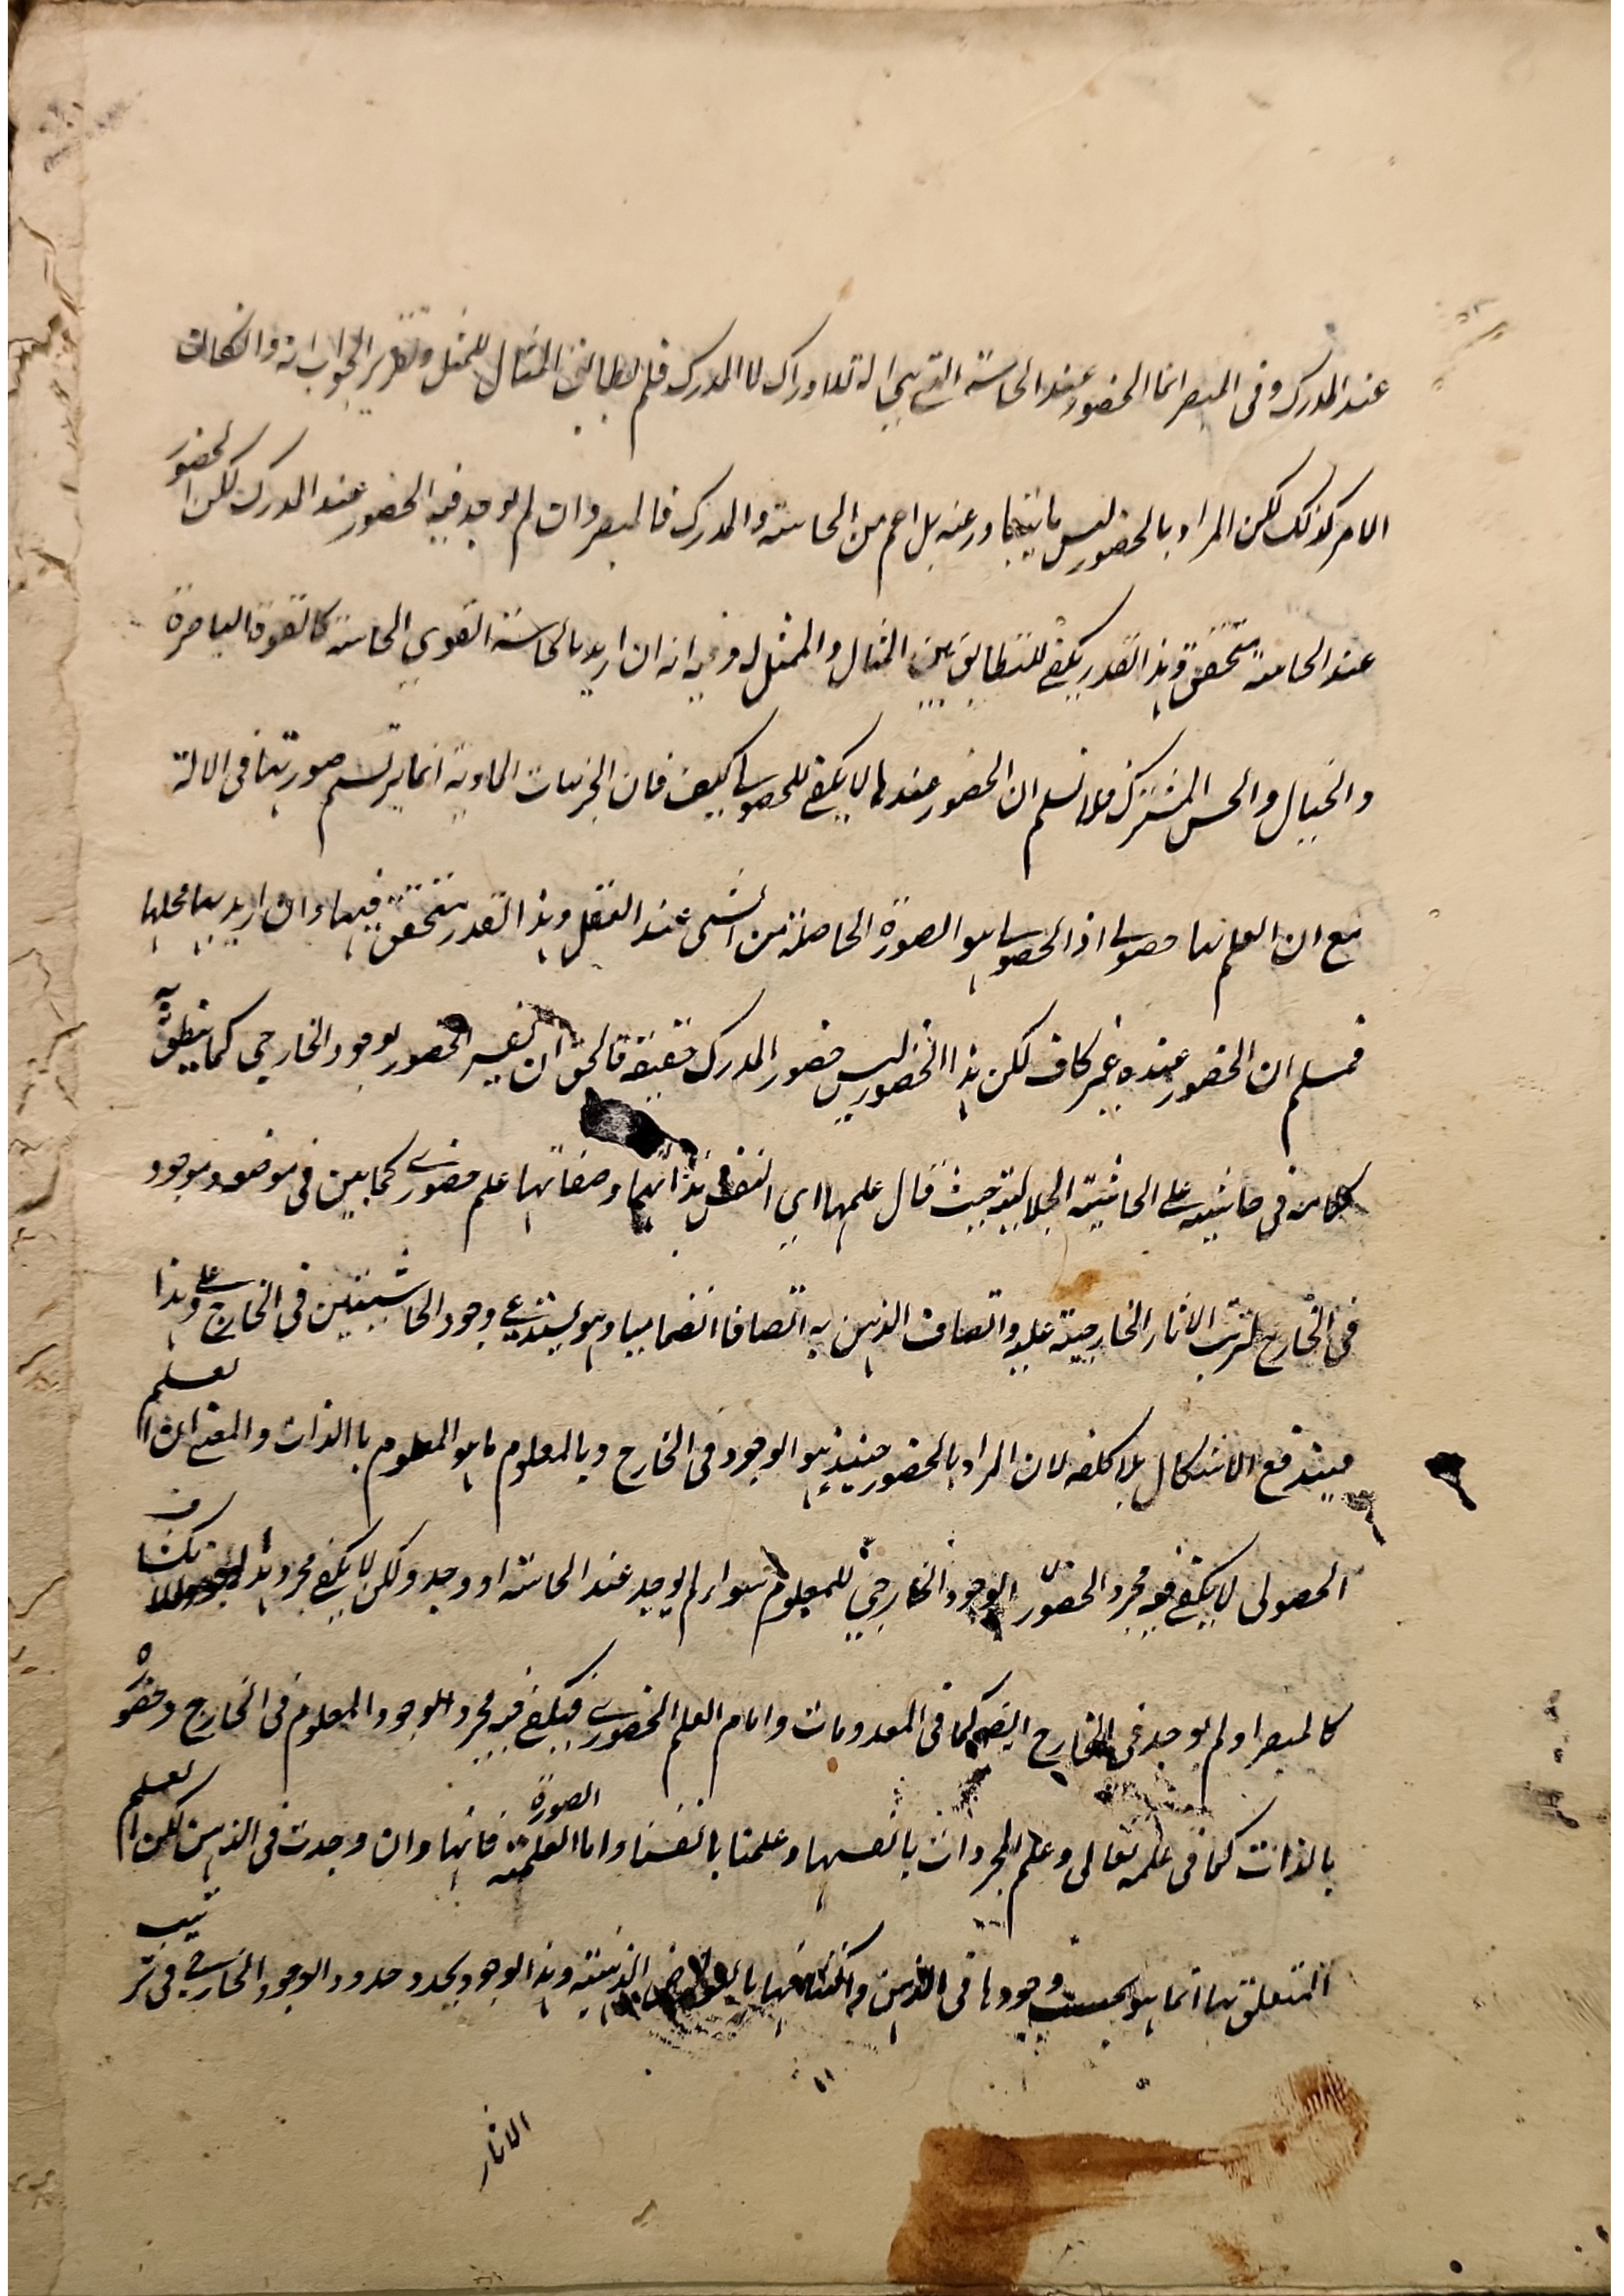 عند المدرك وفى المبصر انما الحضور عند الحاسة التي هي الة للادراك لا المدرك فلم يطابق المثال للممثل وتقرير الجواب انه وانكان
الامر كذلك لكن المراد بالحضور ليس ما يتبادر عنه بل اعم من الحاسة والمدرك فالمبصر وان لم يوجد فيه الحضور عند المدرك لكن الحضور
عند الحاسة متحقق وهذا القدر يكفي للتطابق بين المثال والممثل له وفيه انه ان اريد بالحاسة القوي الحاسة كالقوة الباصرة
والخيال والحس المشترك فلا نسلم ان الحضور عندها لا يكفي للحصولي كيف فان الجزئيات المادية انما يرتسم صورتها فى الالة
مع ان العلم بها حصولي اذ الحصولي هو الصورة الحاصلة من الشى عند العقل وهذا القدر متحقق فيها وان اريد بها محلها
فمسلم ان الحضور عنده غير كاف لكن هذا الحضور ليس حضور المدرك حقيقة فالحق ان يفسر الحضور بوجود الخارجي كما ينطق به
كلامه في حاشيته على الحاشية الجلالية حيث قال علمها اي النفس بذاتها وصفاتها علم حضوري كما بين فى موضعه وموجود
فى الخارج لترتب الاثار الخارجية عليه واتصاف الذهن به اتصافا انضماميا وهو يستدعي وجود الحاشيتين في الخارج وعلى هذا
فيندفع الاشكال بلا كلفه لان المراد بالحضور حينئذ هو الوجود فى الخارج وبالمعلوم ما هو المعلوم بالذات والمعنى ان العلم
الحصولى لا يكفي فيه مجرد الحضور الوجود الخارجي للمعلوم سواء لم يوجد عند الحاسة او وجد ولكن لا يكفي مجرد هذا لانكشاف
كالمبصر او لم يوجد فى الخارج ايضا كما فى المعدومات واما العلم الحضوري فيكفي فيه مجرد الوجود المعلوم فى الخارج وحضوره
بالذات كما فى علمه تعالى وعلم المجردات بانفسها وعلمنا بانفسنا واما الصورة العلمية فانها وان وجدت فى الذهن لكن العلم
المتعلق بها انما هو بحسب وجودها فى الذهن واكتنافها بالعوارض الذهنية وهذا الوجود يحدو حدو الوجود الخارجي فى ترتيب
الاثار